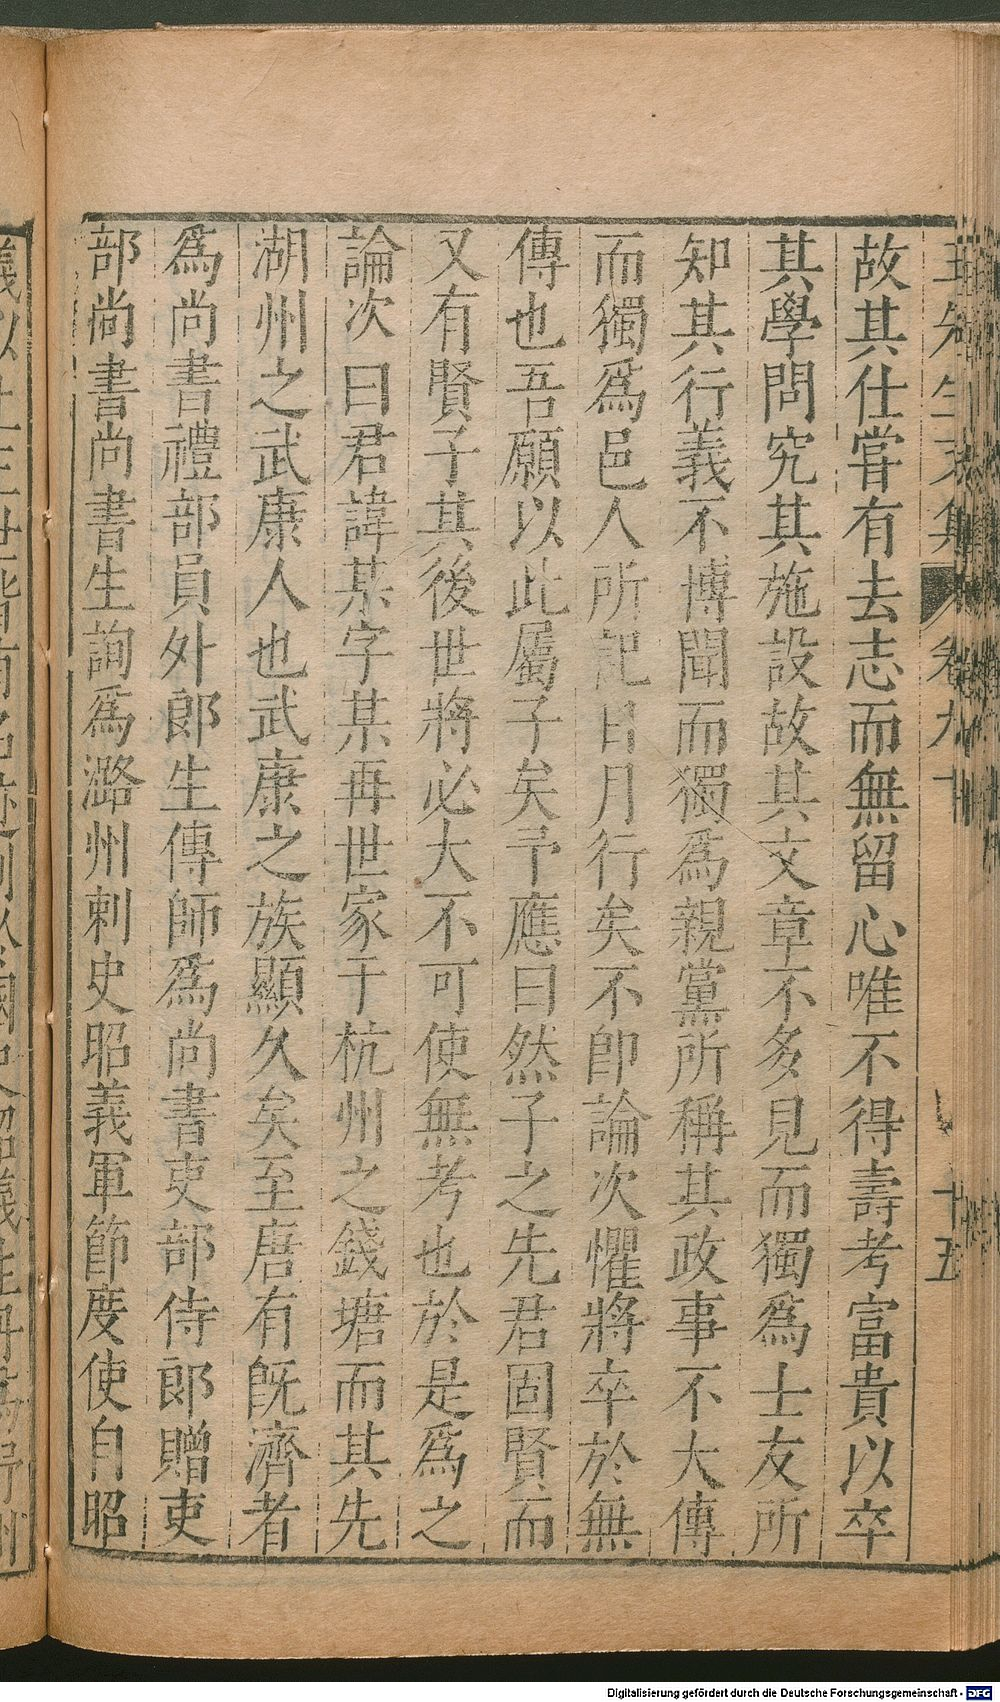 故其仕嘗有去志而無留心唯不得壽考富貴以卒
其學問究其施設故其文章不多見而獨為士友所
知其行義不博聞而獨為親黨所稱其政事不大傳
而獨為邑人所記日月行矣不卽論次懼將卒於無
傳也吾願以此屬子矣予應曰然子之先君固賢而
又有賢子其後世將必大不可使無考也於是為之
論次曰君諱某字某再世家于杭州之錢塘而其先
湖州之武康人也武康之族顯久矣至唐有旣濟者
為尚書禮部員外郎生傳師為尚書吏部侍郎贈吏
部尚書尚書生詢為潞州刺史昭義軍節度使自昭
卷九十
十五
Digitalisierung gefördert durch die Deutsche Forschungsgemeinschaft - DFG